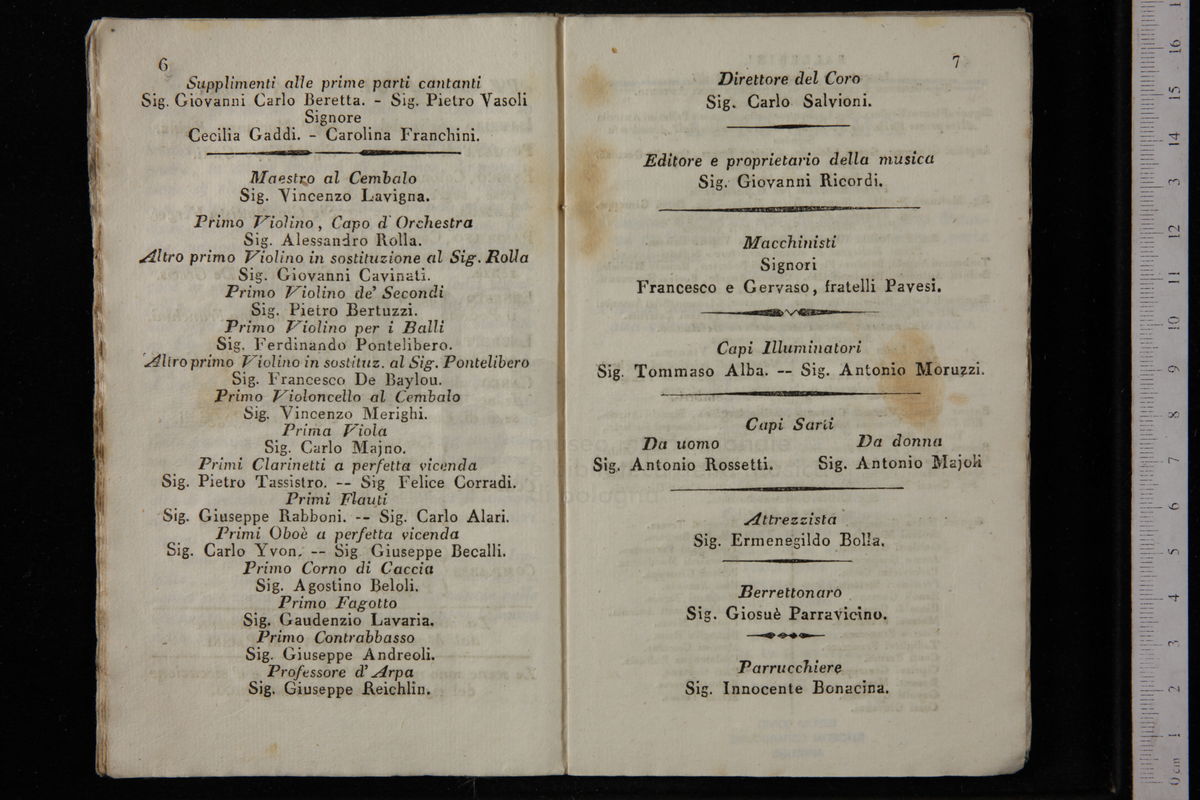 6
Supplimenti alle prime parti cantanti
Sig. Giovanni Carlo Beretta. - Sig. Pietro Vasoli
Signore
Cecilia Gaddi. - Carolina Franchini.
Maestro al Cembalo
Sig. Vincenzo Lavigna.
Primo Violino, Capo d'Orchestra
Sig. Alessandro Rolla.
Altro primo Violino in sostituzione al Sig. Rolla
Sig. Giovanni Cavinati.
Primo Violino de' Secondi
Sig. Pietro Bertuzzi.
Primo Violino per i Balli
Sig. Ferdinando Pontelibero.
Altro primo Violino in sostituz. al Sig. Pontelibero
Sig. Francesco De Baylou.
Primo Violoncello al Cembalo
Sig. Vincenzo Merighi.
Prima Viola
Sig. Carlo Majno.
Primi Clarinetti a perfetta vicenda
Sig. Pietro Tassistro. -- Sig Felice Corradi.
Primi Flauti
Sig. Giuseppe Rabboni. -- Sig. Carlo Alari.
Primi Oboè a perfetta vicenda
Sig. Carlo Yvon. -- Sig Giuseppe Becalli.
Primo Corno di Caccia
Sig. Agostino Beloli.
Primo Fagotto
Sig. Gaudenzio Lavaria.
Primo Contrabbasso
Sig. Giuseppe Andreoli.
Professore d'Arpa
Sig. Giuseppe Reichlin.
7
Direttore del Coro
Sig. Carlo Salvioni.
Editore e proprietario della musica
Sig. Giovanni Ricordi.
Macchinisti
Signori
Francesco e Gervaso, fratelli Pavesi.
Capi Illuminatori
Sig. Tommaso Alba. -- Sig. Antonio Moruzzi.
Capi Sarti
Da uomo Da donna
Sig. Antonio Rossetti. Sig. Antonio Majoli
Attrezzista
Sig. Ermenegildo Bolla.
Berrettonaro
Sig. Giosuè Parravicino.
Parrucchiere
Sig. Innocente Bonacina.
0 cm 1 2 3 4 5 6 7 8 9 10 11 12 13 14 15 16